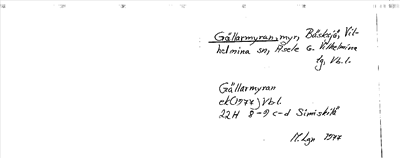 Gällarmyran, myr, Båsksjö, Vil-
helmina sn, Åsele o. Vilhelmina
tg, Vb.l.
Gällarmyran
ek(1977) Vb.l.
22H 8-9 c-d Simiskilä
M. Lgn 1977